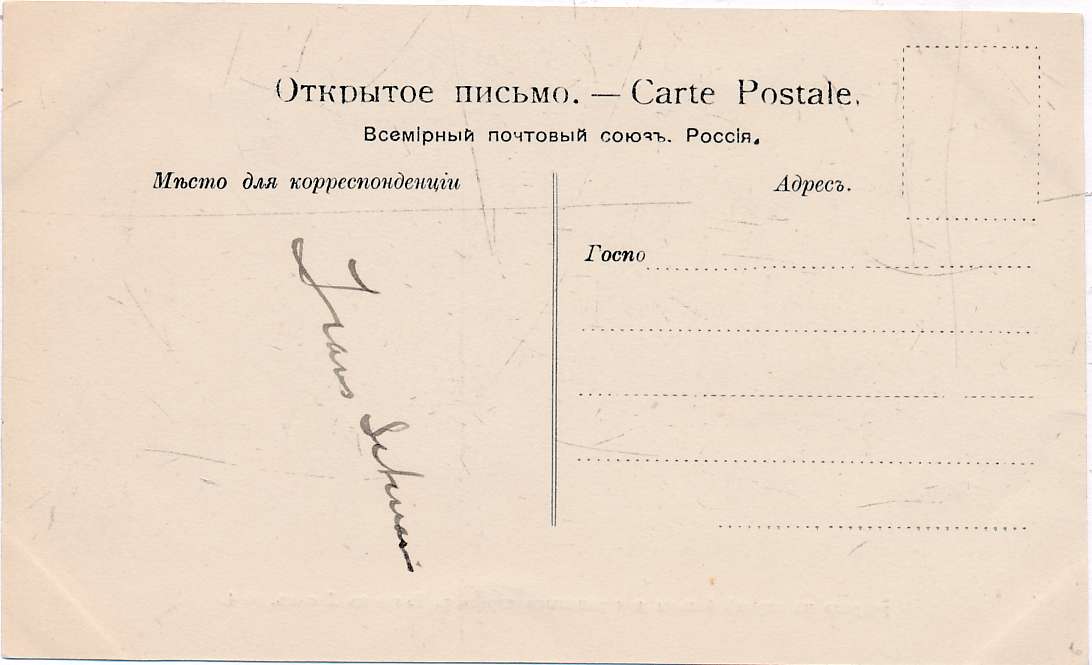 Открытое письмо. — Carte Postale.
Всемірный почтовый союзъ. Россія.
Мѣсто для корреспонденціи
Адресъ.
Госпо